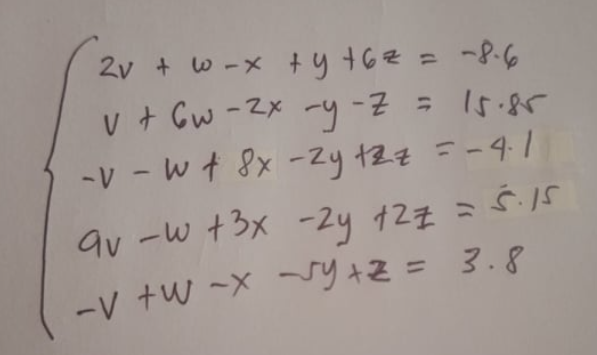 2v + w - x + y + 6z = -8.6
v + 6w - 2x - y - z = 15.85
-v - w + 8x - 2y + 2z = -4.1
9v - w + 3x - 2y + 2z = 5.15
-v + w - x - 5y + z = 3.8